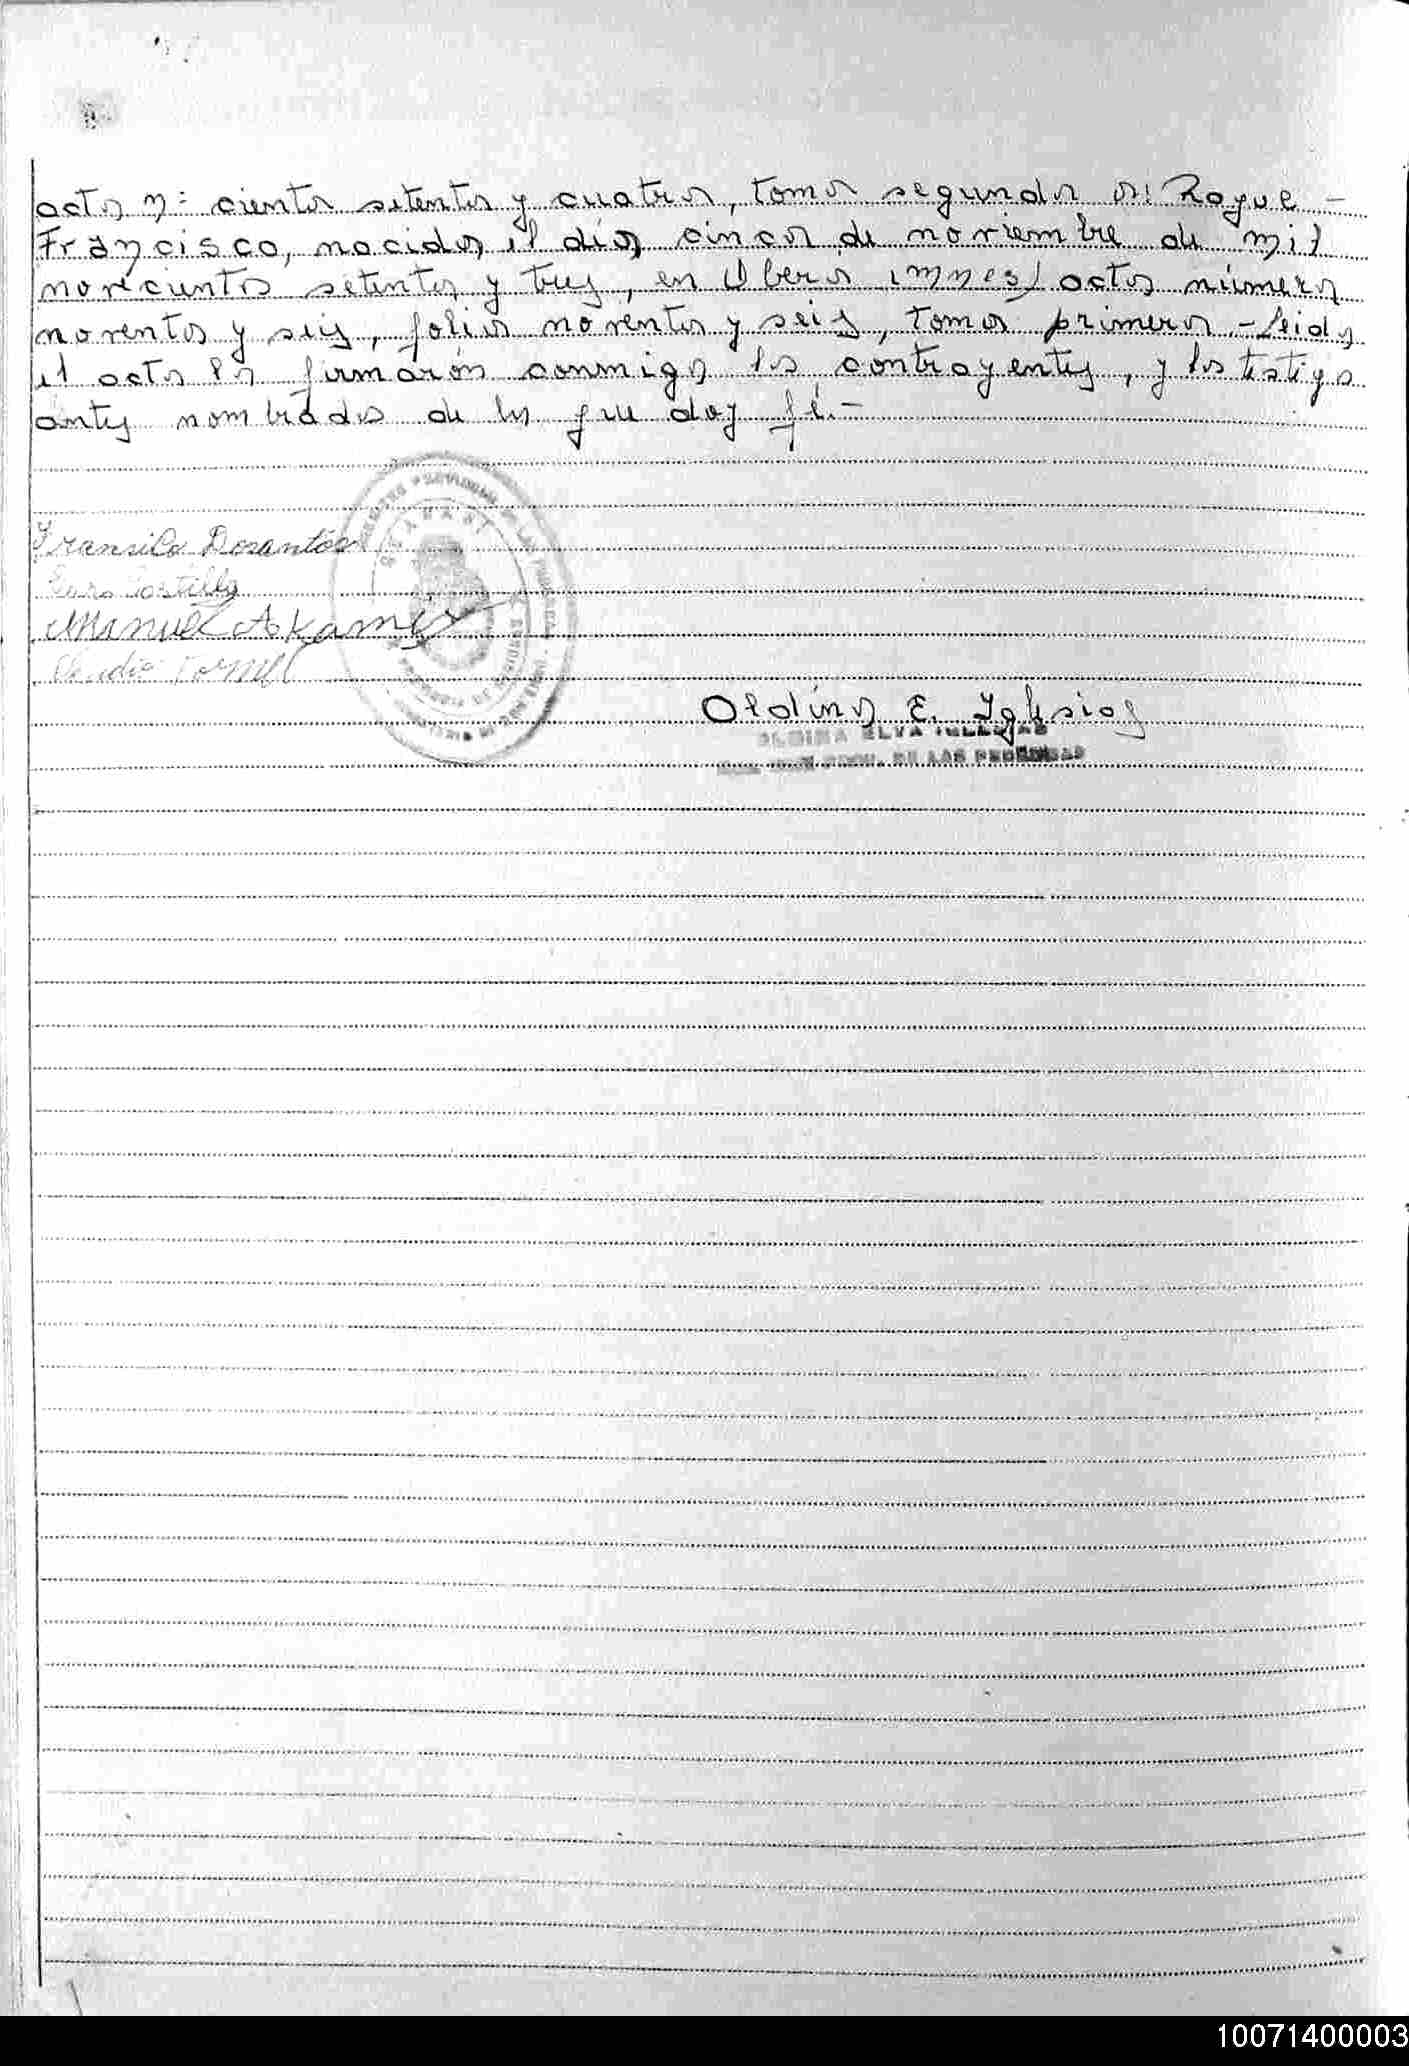 acta nº ciento setenta y cuatro, tomo segundo a: Roque -
Francisco, nacido, el día cinco de noviembre de mil
novecientos setenta y tres, en Oberá (Mnes) acta número
noventa y seis, folio noventa y seis, tomo primero - Leida
el acta la firmarón conmigo los contrayentes, y los testigo
antes nombrados de lo que doy fé.-
Dosantos
Castillo
Manuel A
Oldina E. Iglesias
OLDINA ELVA IGLESIAS
DE LAS PERSONAS
10071400003